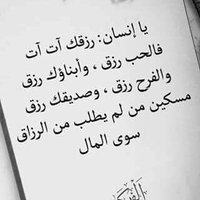 يا إنسان: رزقك آت آت
فالحب رزق ، وأبناؤك رزق
والفرح رزق ، وصديقك رزق
مسكين من لم يطلب من الرزاق
سوى المال